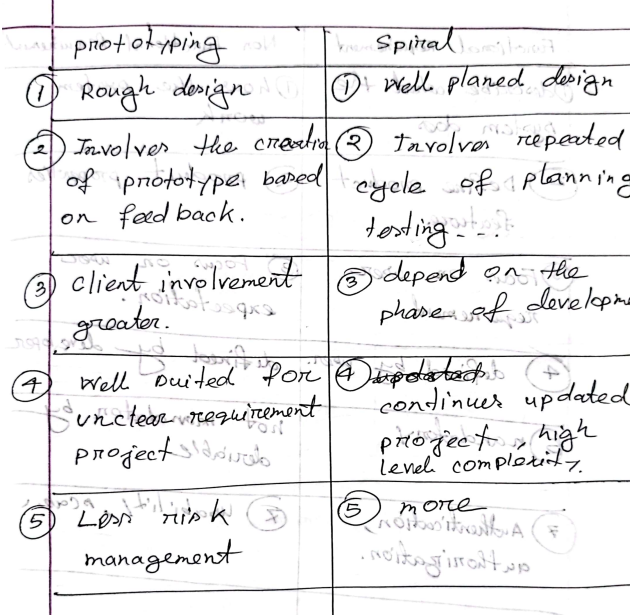 prototyping
Spiral
① Rough design
① Well planed design
② Involves the creatio
of prototype based
on feed back.
② Involves repeated
cycle of planning
testing ...
③ client involvement
greater.
③ depend on the
phase of developme
④ Well suited for
unclear requirement
project
④ updated
continues updated
project, high
level complexity.
⑤ Less risk
management
⑤ more